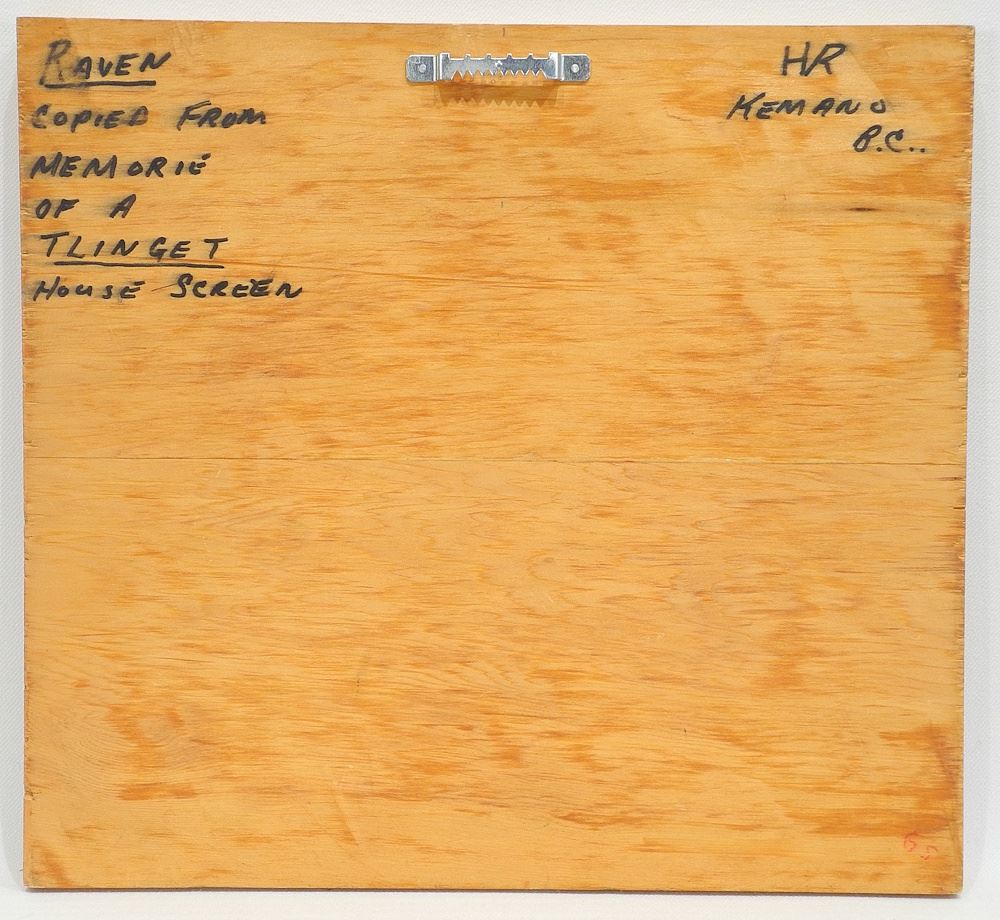 RAVEN
COPIED FROM
MEMORIE
OF A
TLINGET
HOUSE SCREEN
HR
KEMANO
B.C..